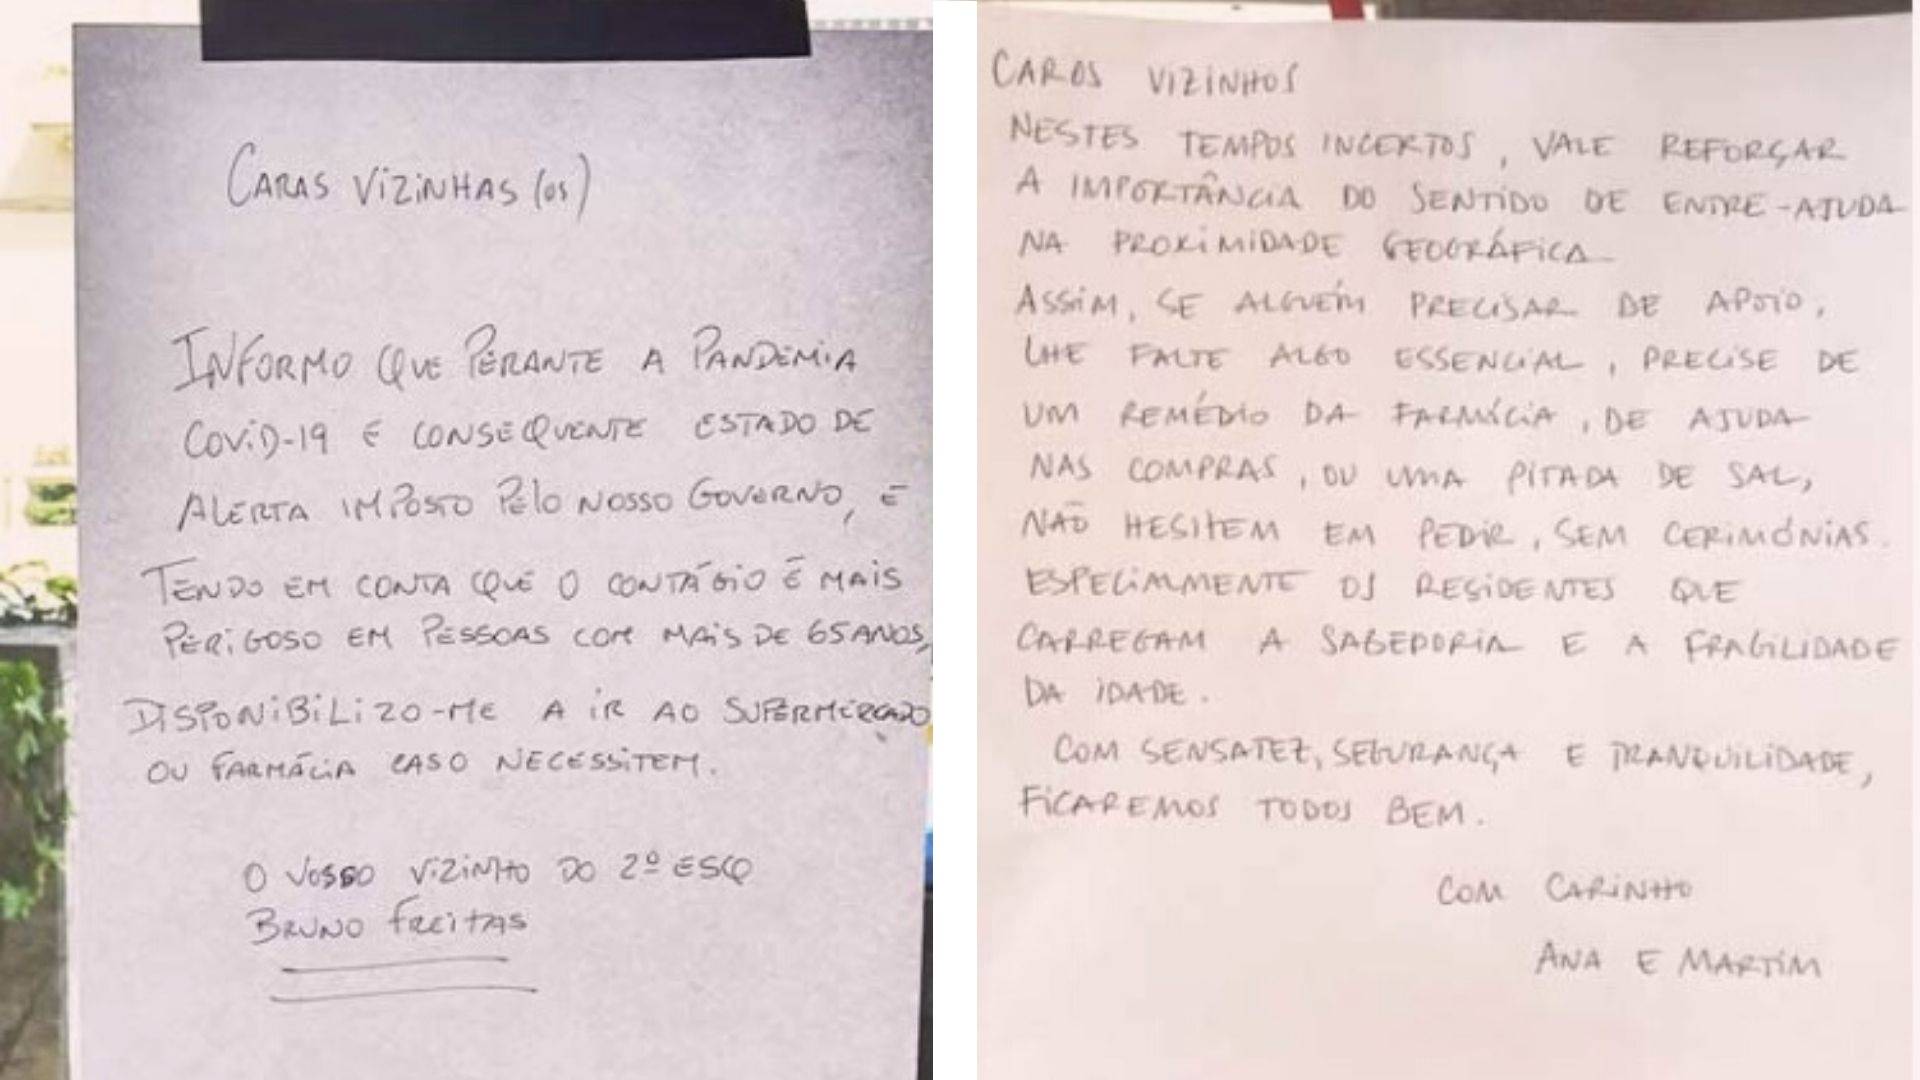 CARAS VIZINHAS (OS)
INFORMO QUE PERANTE A PANDEMIA
COVID-19 E CONSEQUENTE ESTADO DE
ALERTA IMPOSTO PELO NOSSO GOVERNO, E
TENDO EM CONTA QUE O CONTÁGIO É MAIS
PERIGOSO EM PESSOAS COM MAIS DE 65 ANOS,
DISPONIBILIZO-ME A IR AO SUPERMERCADO
OU FARMÁCIA CASO NECESSITEM.
O VOSSO VIZINHO DO 2º ESQ
BRUNO FREITAS
CAROS VIZINHOS
NESTES TEMPOS INCERTOS, VALE REFORÇAR
A IMPORTÂNCIA DO SENTIDO DE ENTRE-AJUDA
NA PROXIMIDADE GEOGRÁFICA
ASSIM, SE ALGUÉM PRECISAR DE APOIO,
LHE FALTE ALGO ESSENCIAL, PRECISE DE
UM REMÉDIO DA FARMÁCIA, DE AJUDA
NAS COMPRAS, OU UMA PITADA DE SAL,
NÃO HESITEM EM PEDIR, SEM CERIMÓNIAS.
ESPECIALMENTE OS RESIDENTES QUE
CARREGAM A SABEDORIA E A FRAGILIDADE
DA IDADE.
COM SENSATEZ, SEGURANÇA E TRANQUILIDADE,
FICAREMOS TODOS BEM.
COM CARINHO
ANA E MARTIM